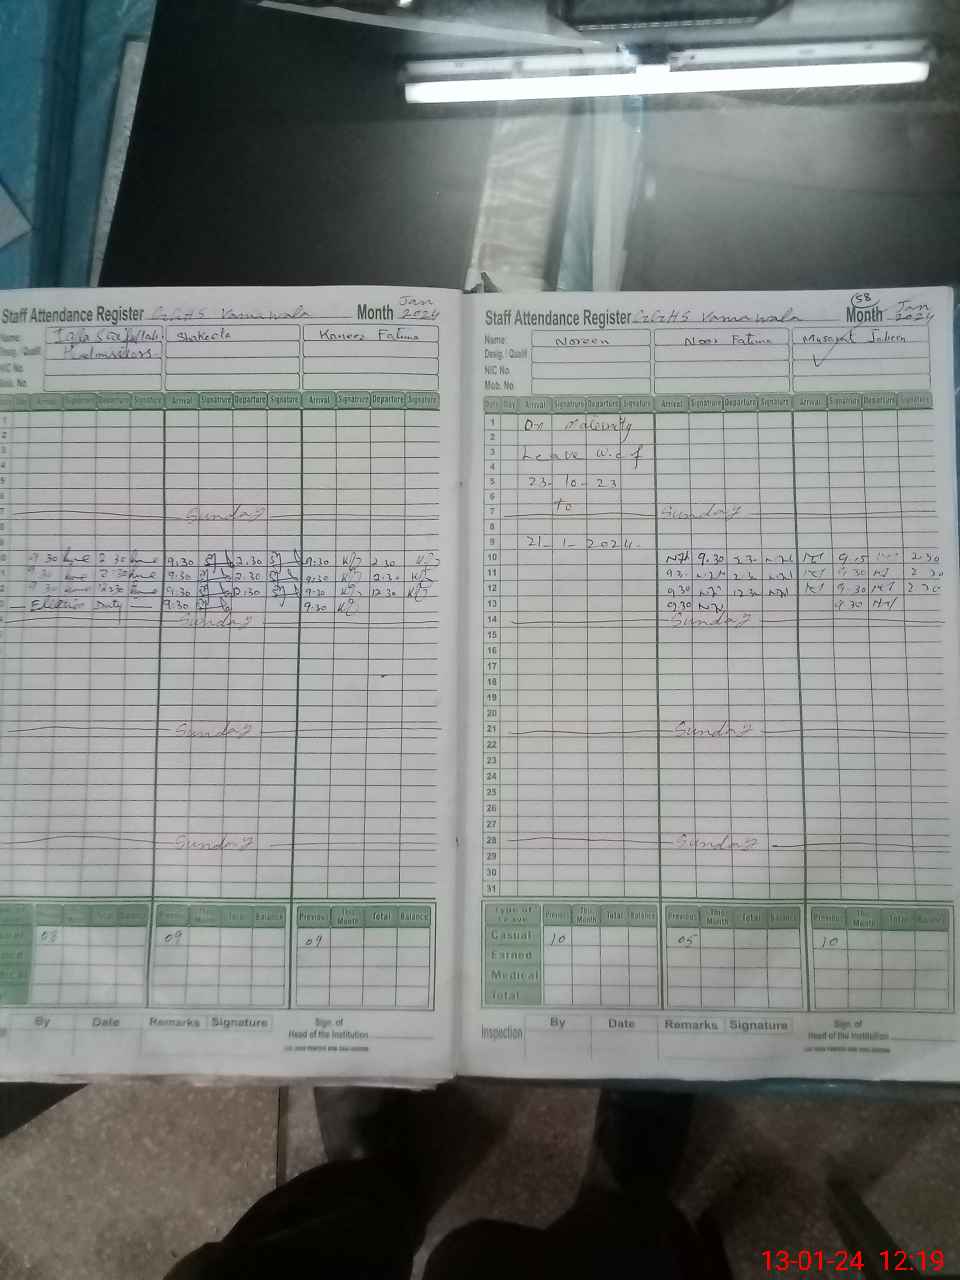 Staff Attendance Register GGHS Vanawala Month Jan 2024
Name:
Shakeela
Kaneez Fatima
Desig. / Qualif
Headmistress.
NIC No.
Mob. No.
Day Arrival Signature Departure Signature Arrival Signature Departure Signature Arrival Signature Departure Signature
1
2
3
4
5
6
7 Sunday
8
9
10 9 30 2 30 9.30 2.30 9:30 2 30
11 9 30 2 30 9:30 2:30 9:30 2:30
12 9 30 12:30 9:30 12:30 9:30 12.30
13 Election Duty 9:30 9:30
14 Sunday
Sunday
Sunday
Previous This Month Total Balance
08 09 09
By Date Remarks Signature Sign. of
Head of the Institution
58
Staff Attendance Register GGHS Vanawala Month Jan 2024
Name: Noreen Noor Fatima Musarat Jabeen
Desig. / Qualif
NIC No.
Mob. No.
Date Day Arrival Signature Departure Signature Arrival Signature Departure Signature Arrival Signature Departure Signature
1 On Maternity
2
3 Leave w.e.f
4
5 23-10-23
6
7 to Sunday
8
9 21-1-2024.
10 9.30 2.30 9.15 2.30
11 9.30 2.30 9.30 2.30
12 9.30 12.30 9.30 2.30
13 9.30 9.30
14 Sunday
15
16
17
18
19
20
21 Sunday
22
23
24
25
26
27
28 Sunday
29
30
31
Type of Leave Previous This Month Total Balance Previous This Month Total Balance Previous This Month Total Balance
Casual 10 05 10
Earned
Medical
Total
Inspection By Date Remarks Signature Sign. of
Head of the Institution
13-01-24 12:19